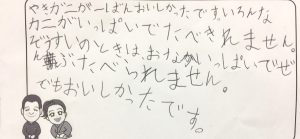 やきガニがーばんおいしかったです。いろんな
カニがいっぱいでたべきれません。
ぞうすいのときは、おなかいっぱいでぜ
んぶたべられません。
でもおいしかったです。